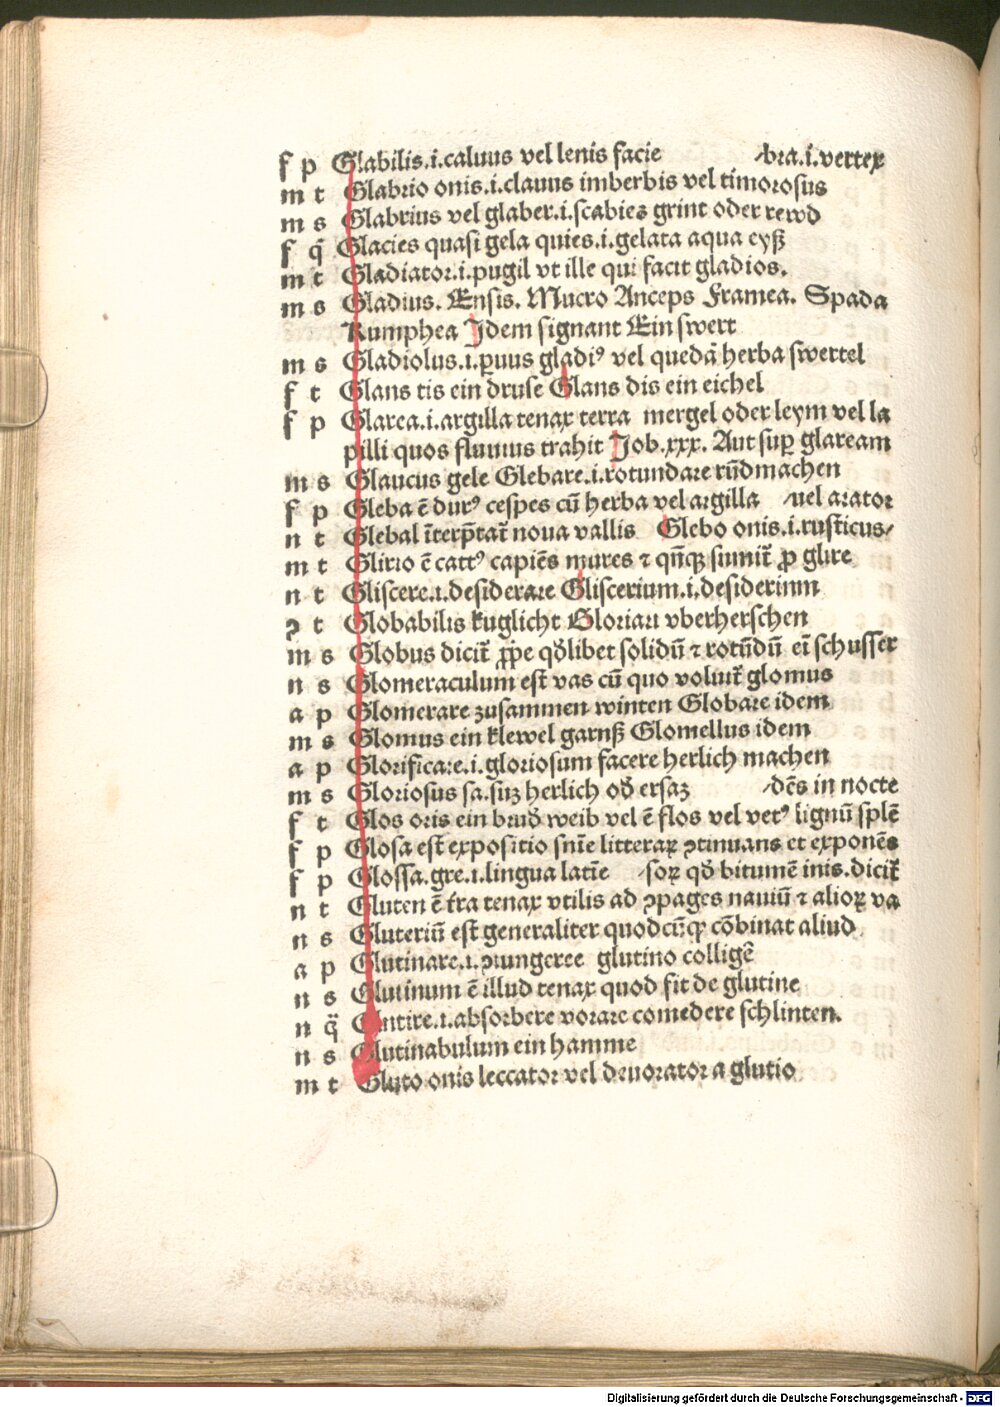 f p Glabilis.i.caluus vel lenis facie ⸝bra.i.vertex
m t Glabrio onis.i.clauus imberbis vel timorosus
m s Glabrius vel glaber.i.scabies grint oder rewd
f q̄ Glacies quasi gela quies.i.gelata aqua eyß
m t Gladiator.i.pugil vt ille qui facit gladios.
m s Gladius. Ensis. Mucro Anceps Framea. Spada
Rumphea Idem signant Ein swert
m s Gladiolus.i.ꝑuus gladiꝰ vel quedā herba swertel
f t Glans tis ein druse Glans dis ein eichel
f p Glarea.i.argilla tenax terra mergel oder leym vel la
pilli quos fluuius trahit Job.xxx. Aut suꝑ glaream
m s Glaucus gele Glebare.i.rotundare rūdmachen
f p Gleba ē durꝰ cespes cū herba vel argilla ⸝uel arator
n t Glebal īterp̄tat̄ noua vallis Glebo onis.i.rusticus⸝
m t Glirio ē cattꝰ capiēs mures ⁊ qn̄qꝫ sumit̄ ꝓ glire
n t Gliscere.i.desiderare Gliscerium.i.desiderium
ꝯ t Globabilis kuglicht Gloriari vberherschen
m s Globus dicit̄ ꝓp̄e qd̄libet solidū ⁊ rotūdū eī schusser
n s Glomeraculum est vas cū quo voluit̄ glomus
a p Glomerare zusammen winten Globare idem
m s Glomus ein klewel garnß Glomellus idem
a p Glorificare.i.gloriosum facere herlich machen
m s Gloriosus sa.suꝫ herlich od̄ ersaz ⸝dēs in nocte
f t Glos oris ein brud̄ weib vel ē flos vel vetꝰ lignū splē
f p Glosa est expositio sn̄ie litteraꝝ ꝯtinuans et exponēs
f p Glossa.gre.i.lingua latīe ⸝soꝝ qd̄ bitumē inis.dicit̄
n t Gluten ē t̄ra tenax vtilis ad ꝯpages nauiū ⁊ alioꝝ va
n s Gluteriū est generaliter quodcūqꝫ cōbinat aliud
a p Glutinare.i.ꝯiungeree glutino colligē
n s Glutinum ē illud tenax quod fit de glutine
n q̄ Glutire.i.absorbere vorare comedere schlinten.
n s Glutinabulum ein hamme
m t Gluto onis leccator vel deuorator a glutio
Digitalisierung gefördert durch die Deutsche Forschungsgemeinschaft - DFG